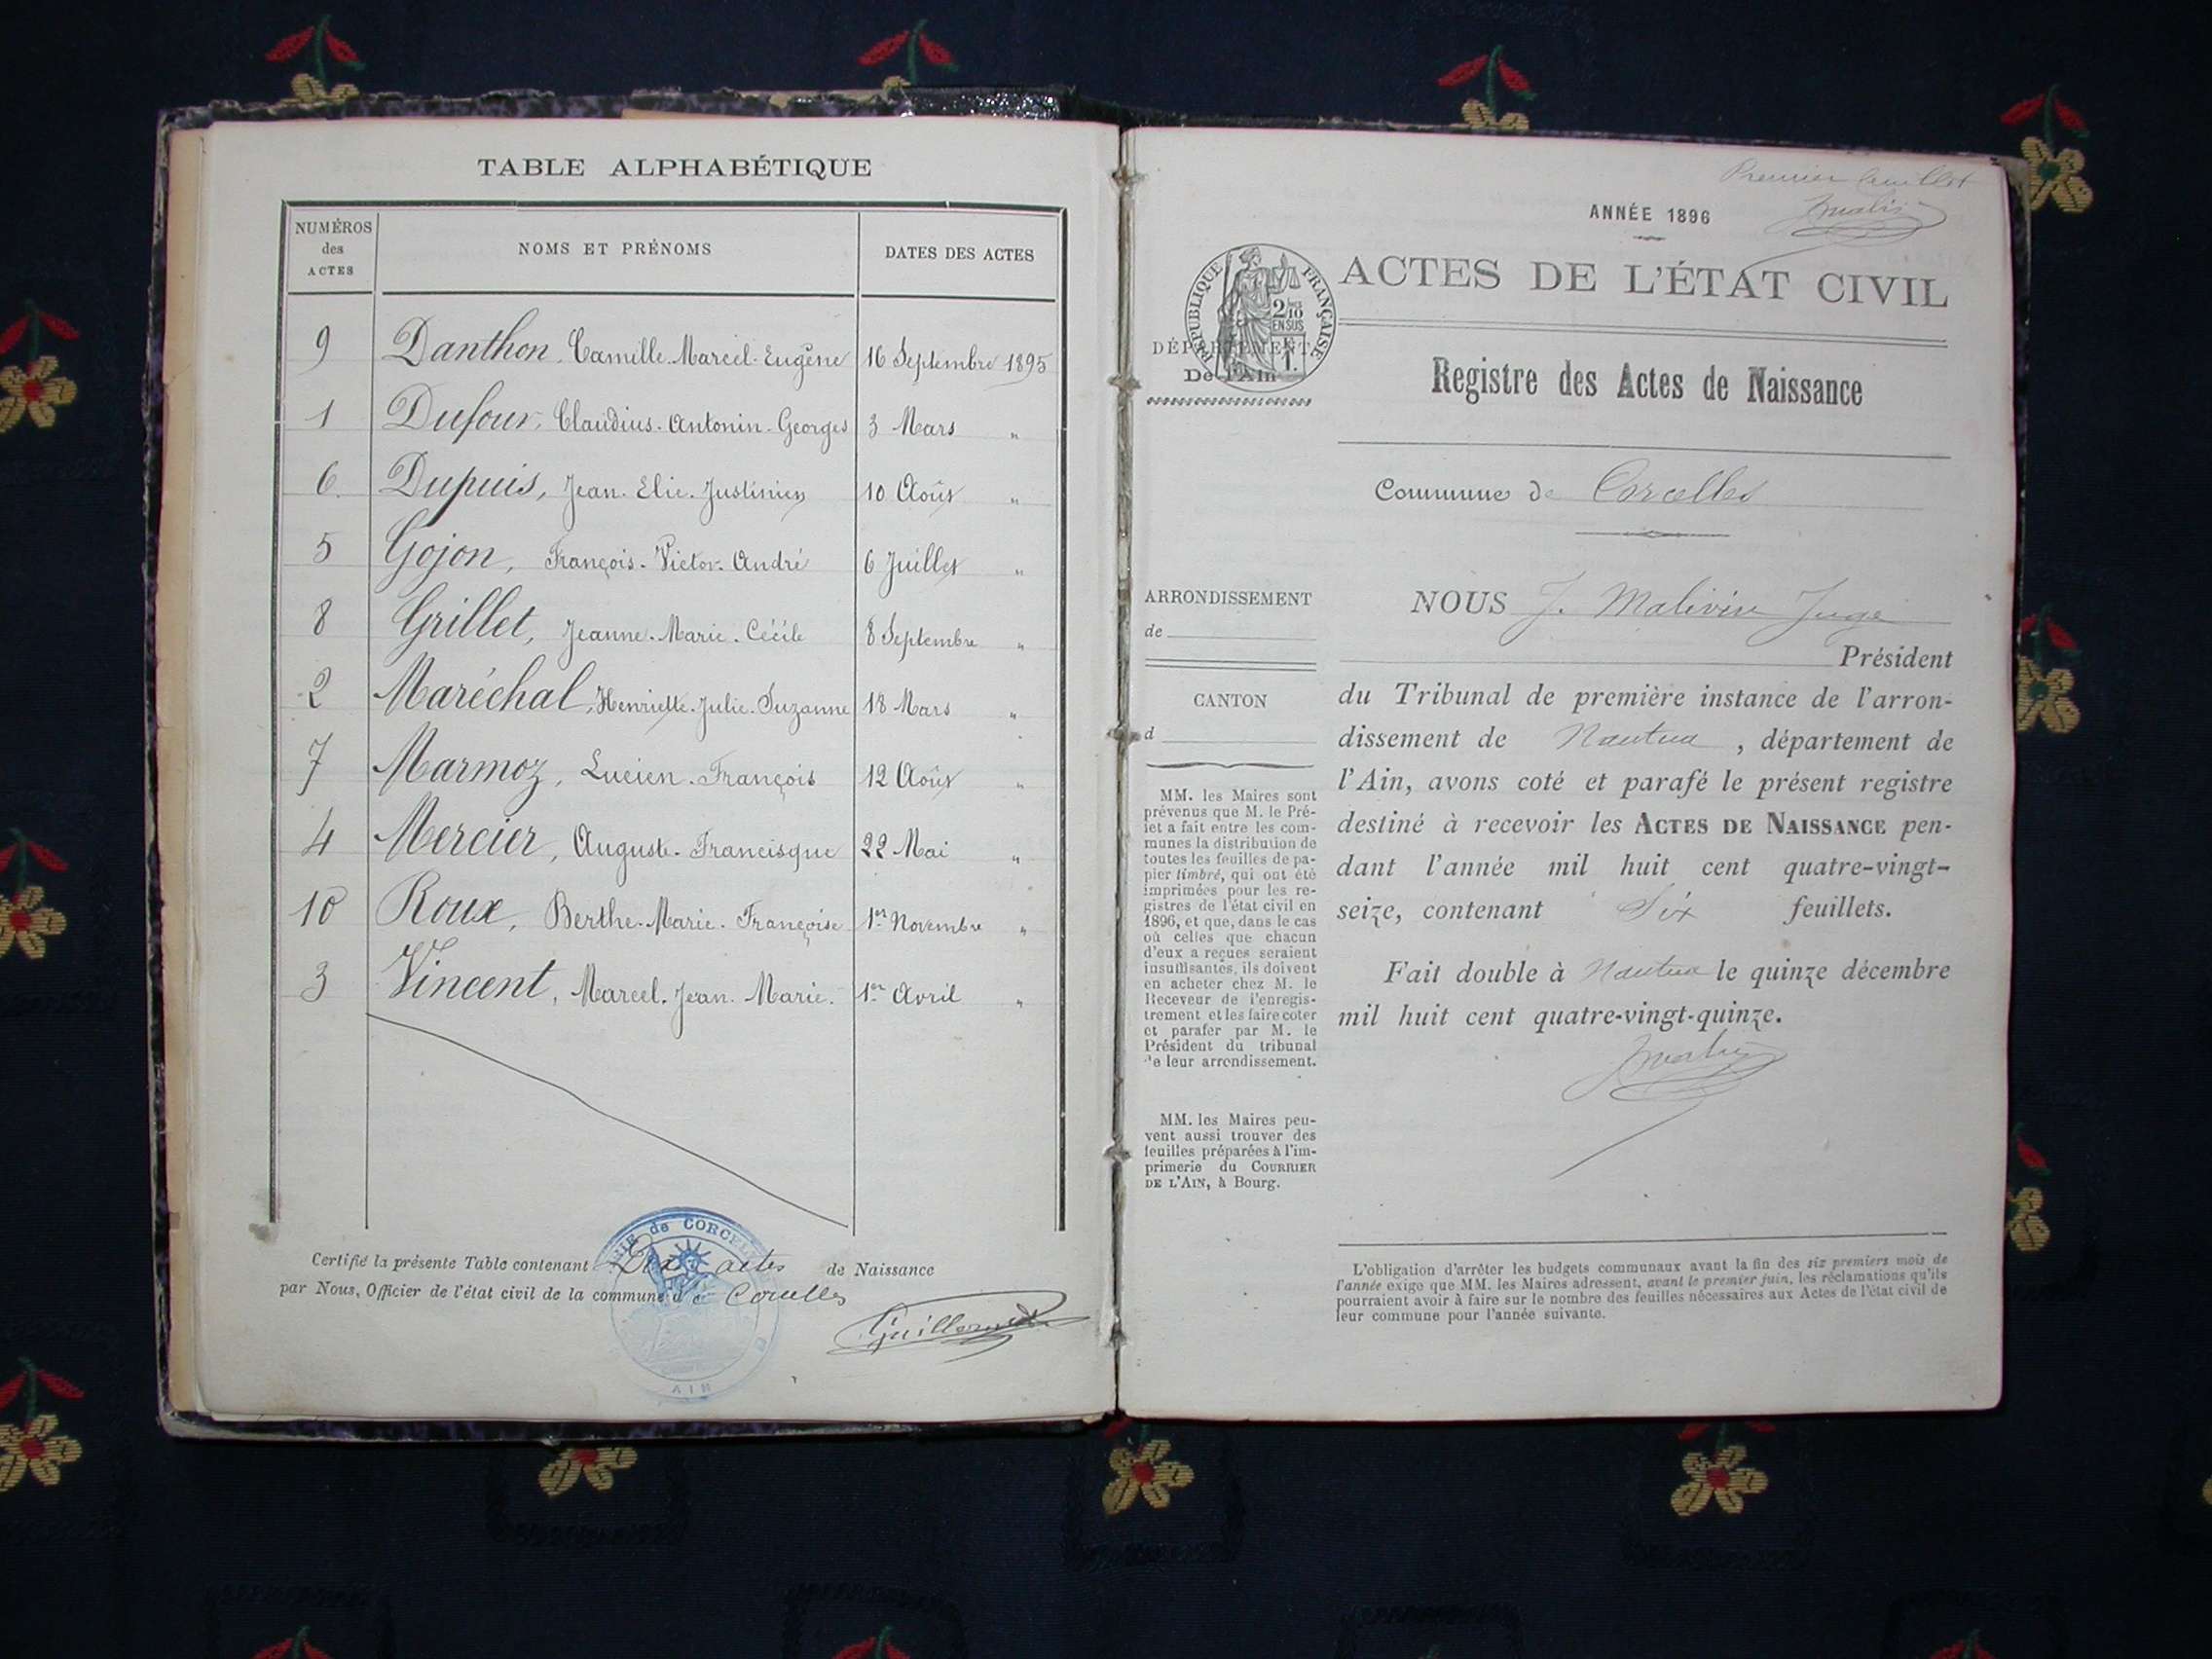 TABLE ALPHABÉTIQUE
NUMÉROS des ACTES NOMS ET PRÉNOMS DATES DES ACTES
9 Danthon, Camille-Marcel-Eugène 16 Septembre 1895
1 Dufour, Claudius-Antonin-Georges 3 Mars "
6 Dupuis, Jean-Elie-Justinien 10 Août "
5 Gojon, François-Victor-André 6 Juillet "
8 Grillet, Jeanne-Marie-Cécile 8 Septembre "
2 Maréchal, Henriette-Julie-Suzanne 18 Mars "
7 Marmoz, Lucien-François 12 Août "
4 Mercier, Auguste-Francisque 22 Mai "
10 Roux, Berthe-Marie-Françoise 1er Novembre "
3 Vincent, Marcel-Jean-Marie. 1er Avril "
Certifié la présente Table contenant Dix actes de Naissance
par Nous, Officier de l'état civil de la commune de Corcelles
de CORCEL
AIN
Premier feuillet
ANNÉE 1896
RÉPUBLIQUE FRANÇAISE
2/10
EN SUS
1.
ACTES DE L'ÉTAT CIVIL
DÉPARTEMENT
De l'Ain
Registre des Actes de Naissance
Commune de Corcelles
ARRONDISSEMENT
de
CANTON
d
MM. les Maires sont
prévenus que M. le Pré-
fet a fait entre les com-
munes la distribution de
toutes les feuilles de pa-
pier timbré, qui ont été
imprimées pour les re-
gistres de l'état civil en
1896, et que, dans le cas
où celles que chacun
d'eux a reçues seraient
insuffisantes, ils doivent
en acheter chez M. le
Receveur de l'enregis-
trement et les faire coter
et parafer par M. le
Président du tribunal
de leur arrondissement.
MM. les Maires peu-
vent aussi trouver des
feuilles préparées à l'im-
primerie du COURRIER
DE L'AIN, à Bourg.
NOUS J. Malivin Juge
Président
du Tribunal de première instance de l'arron-
dissement de Nantua, département de
l'Ain, avons coté et parafé le présent registre
destiné à recevoir les ACTES DE NAISSANCE pen-
dant l'année mil huit cent quatre-vingt-
seize, contenant Six feuillets.
Fait double à Nantua le quinze décembre
mil huit cent quatre-vingt-quinze.
L'obligation d'arrêter les budgets communaux avant la fin des six premiers mois de
l'année exige que MM. les Maires adressent, avant le premier juin, les réclamations qu'ils
pourraient avoir à faire sur le nombre des feuilles nécessaires aux Actes de l'état civil de
leur commune pour l'année suivante.